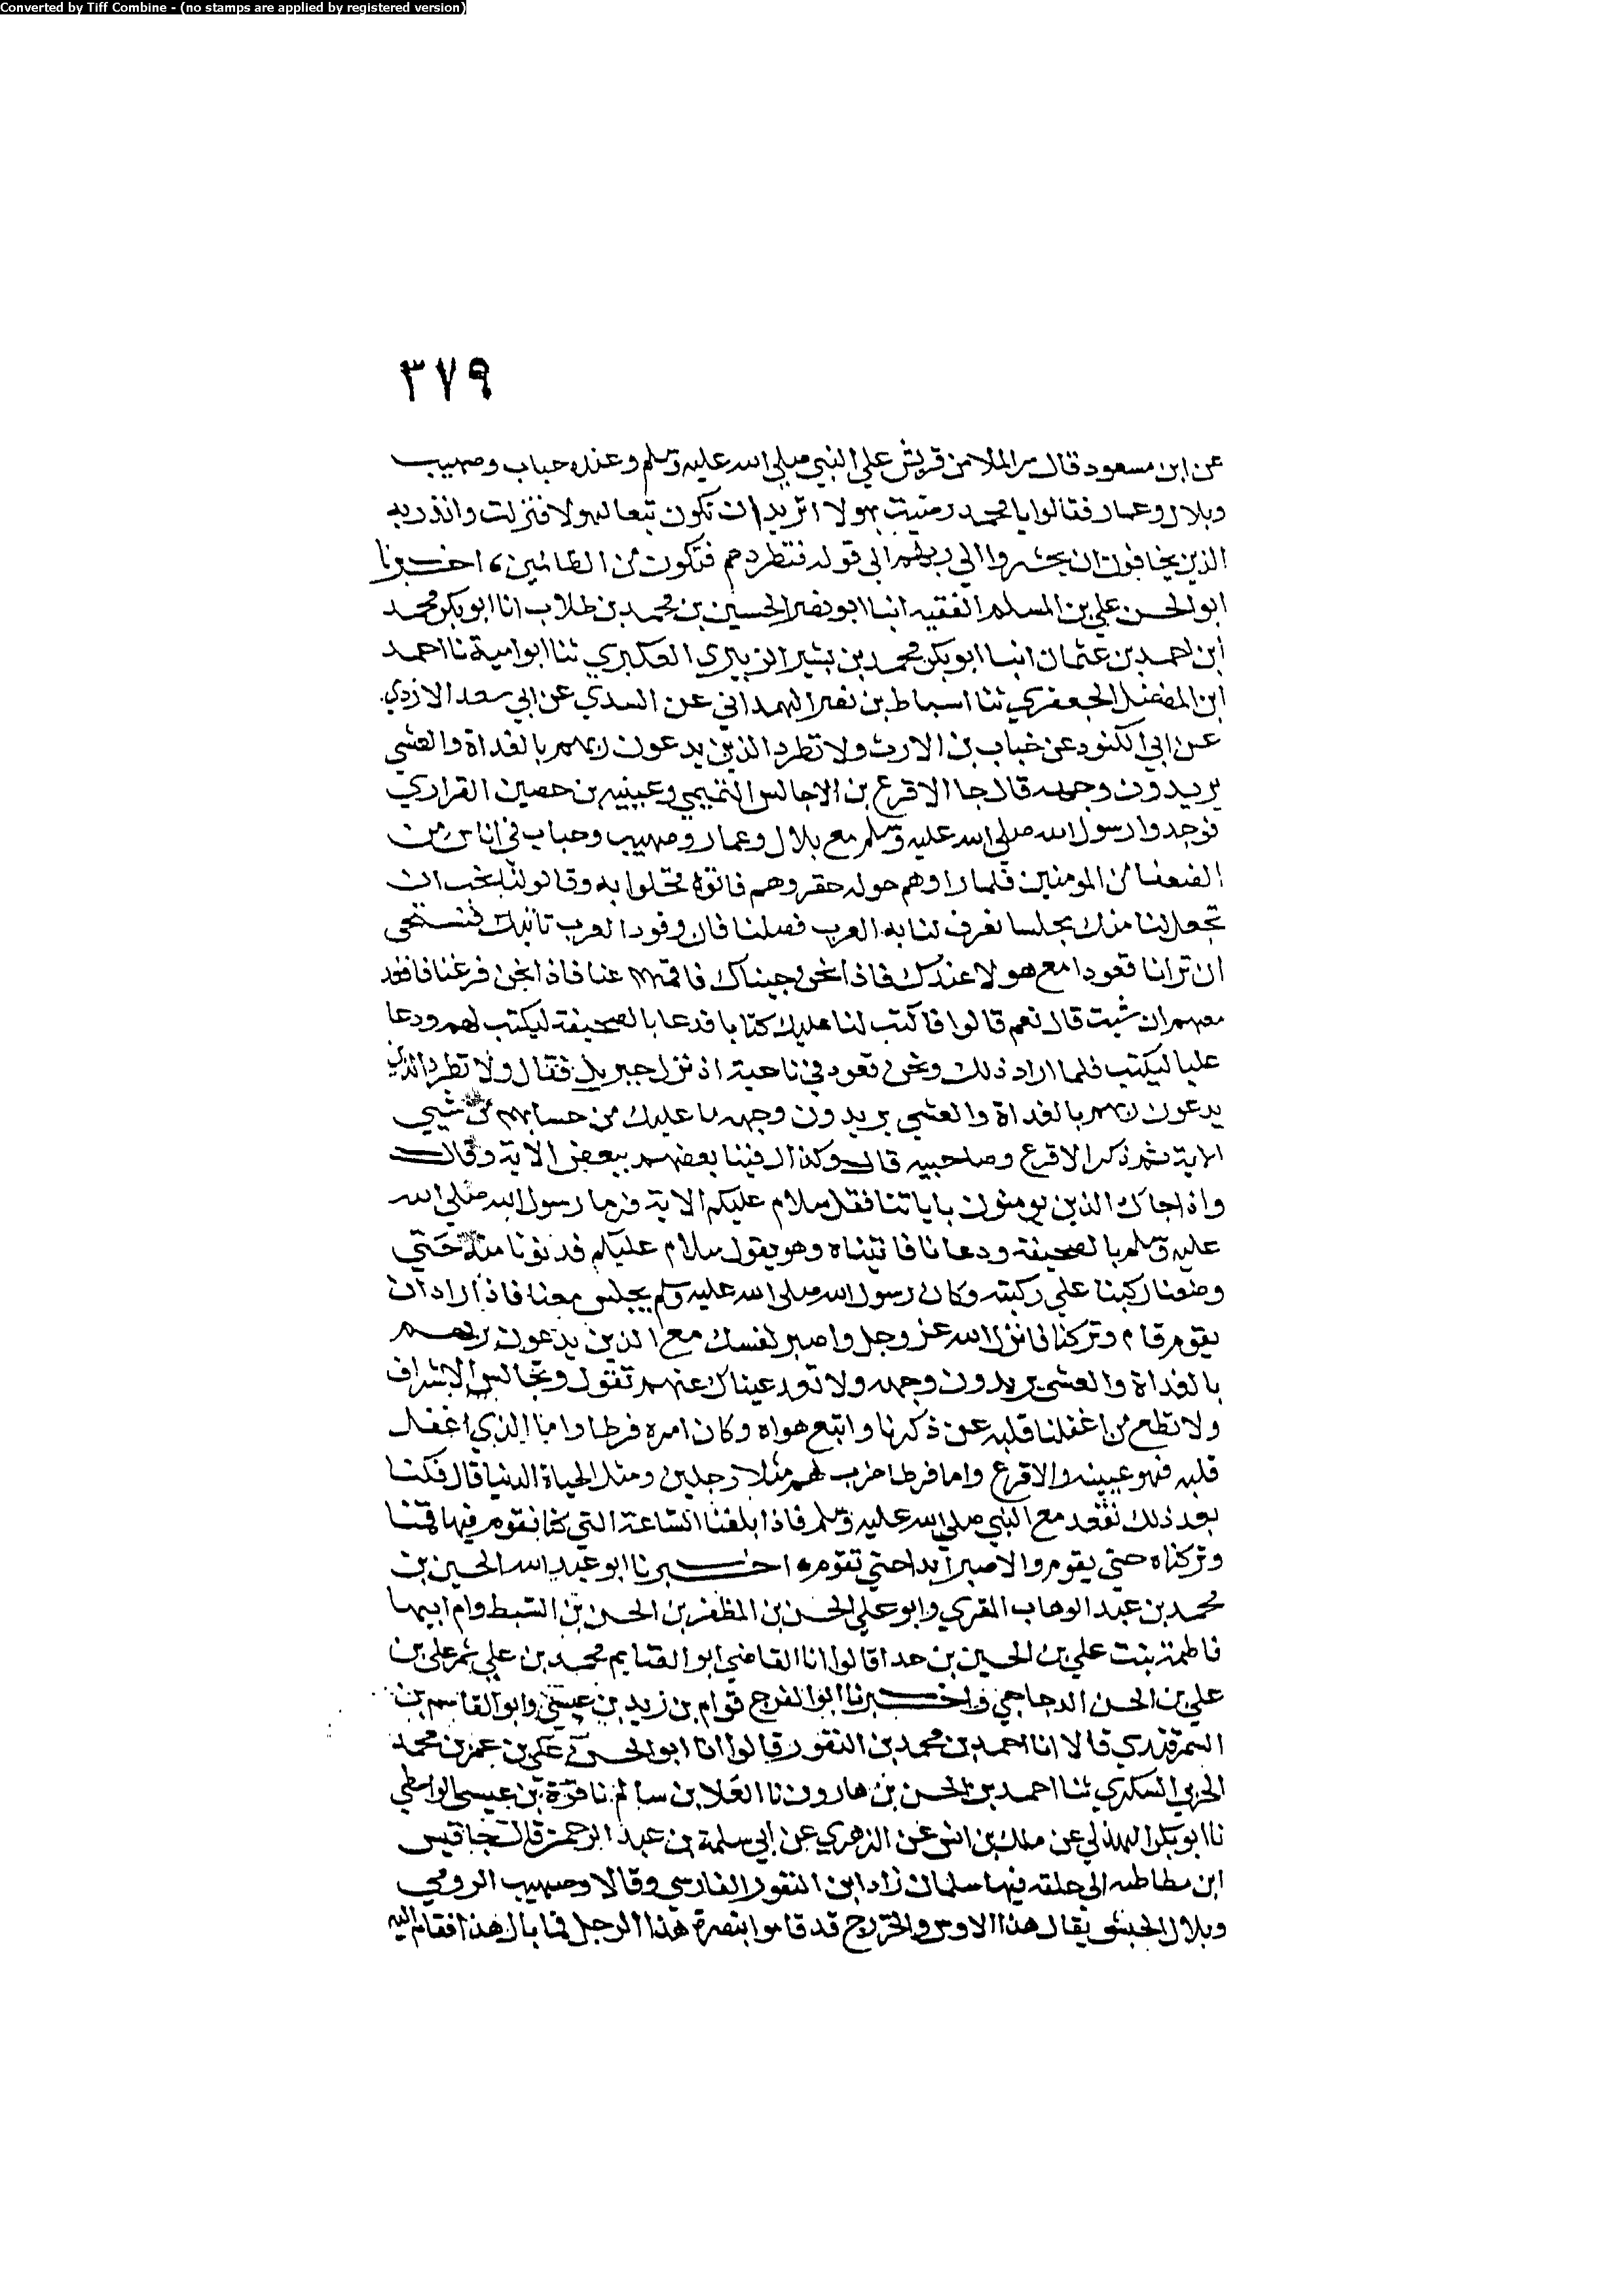 Converted by Tiff Combine - (no stamps are applied by registered version)
٣٧٩
عن ابن مسعود قال مر الملا من قريش علي النبي صلي الله عليه وسلم وعنده خباب وصهيب
وبلال وعمار فقالوا يا محمد رضيت بهولا اتريد ان نكون تبعا لهولا فنزلت وانذر به
الذين يخافون ان يحشروا الي ربهم الي قوله فتطردهم فتكون من الظالمين، اخبرنا
ابو الحسن علي بن المسلم الفقيه انبا ابو نصر الحسين بن محمد بن طلاب انا ابو بكر محمد
ابن احمد بن عثمان انبا ابو بكر محمد بن بشير الزبيري العكبري ثنا ابو امية نا احمد
ابن المفضل الجعفري ثنا اسباط بن نصر الهمداني عن السدي عن ابي سعد الازدي
عن ابي الكنود عن خباب بن الارت ولا تطرد الذين يدعون ربهم بالغداة والعشي
يريدون وجهه قال جا الاقرع بن الاجالس التميمي وعيينه بن حصين الفزاري
فوجدوا رسول الله صلي الله عليه وسلم مع بلال وعمار وصهيب وخباب في اناس من
الضعفا من المومنين فلما راوهم حوله حقروهم فاتوه فخلوا به وقالوا انا نحب ان
تجعل لنا منك مجلسا تعرف لنا به العرب فضلنا فان وفود العرب تاتيك فنستحي
ان ترانا قعودا مع هولا عندك فاذا نحن جيناك فاقمهم عنا فاذا نحن فرغنا فاقعد
معهم ان شيت قال نعم قالوا فاكتب لنا عليك كتابا فدعا بالصحيفة ليكتب لهم ودعا
عليا ليكتب فلما اراد ذلك ونحن قعود في ناحية اذ نزل جبريل فقال ولا تطرد الذين
يدعون ربهم بالغداة والعشي يريدون وجهه ما عليك من حسابهم من شيي
الاية ثم ذكر الاقرع وصاحبيه قال وكذلك فتنا بعضهم ببعض الاية وقال
واذا جاك الذين يومنون باياتنا فقل سلام عليكم الاية فرما رسول الله صلي الله
عليه وسلم بالصحيفة ودعانا فاتيناه وهو يقول سلام عليكم فدنونا منه حتي
وضعنا ركبنا علي ركبته وكان رسول الله صلي الله عليه وسلم يجلس معنا فاذا اراد ان
يقوم قام وتركنا فانزل الله عز وجل واصبر نفسك مع الذين يدعون ربهم
بالغداة والعشي يريدون وجهه ولا تعد عيناك عنهم تقول وتجالس الاشراف
ولا تطع من اغفلنا قلبه عن ذكرنا واتبع هواه وكان امره فرطا واما الذي اغفل
قلبه فهو عيينه والاقرع واما فرطا ضرب لهم مثلا رجلين ومثل الحياة الدنيا قال فكنا
بعد ذلك نقعد مع النبي صلي الله عليه وسلم فاذا بلغنا الساعة التي كنا نقوم فيها قمنا
وتركناه حتي يقوم والا صبر ابدا حتي نقوم، اخبرنا ابو عبد الله الحسين بن
محمد بن عبد الوهاب المقري وابو علي الحسن بن المظفر بن الحسن بن السبط وام ابيها
فاطمة بنت علي بن الحسين بن جدا قالوا انا القاضي ابو الغنايم محمد بن علي ثم علي بن
علي بن الحسن الدجاجي واخبرنا ابو الفرج قوام بن زيد بن عيسي وابو القاسم بن
السمرقندي قالا انا احمد بن محمد بن النقور قالوا انا ابو الحسن علي بن عمر بن محمد
الحربي السكري ثنا احمد بن الحسن بن هارون نا العلا بن سالم نا قرة بن عيسي الواسطي
نا ابو بكر الهذلي عن ملك بن انس عن الزهري عن ابي سلمة بن عبد الرحمن قال جا قيس
ابن مطاطيه الي حلقه فيها سلمان زاد ابن النقور الفارسي وقالا وصهيب الرومي
وبلال الحبشي يقال هذا الاوس والخزرج قد قاموا بنصرة هذا الرجل فما بال هذا فقام اليه